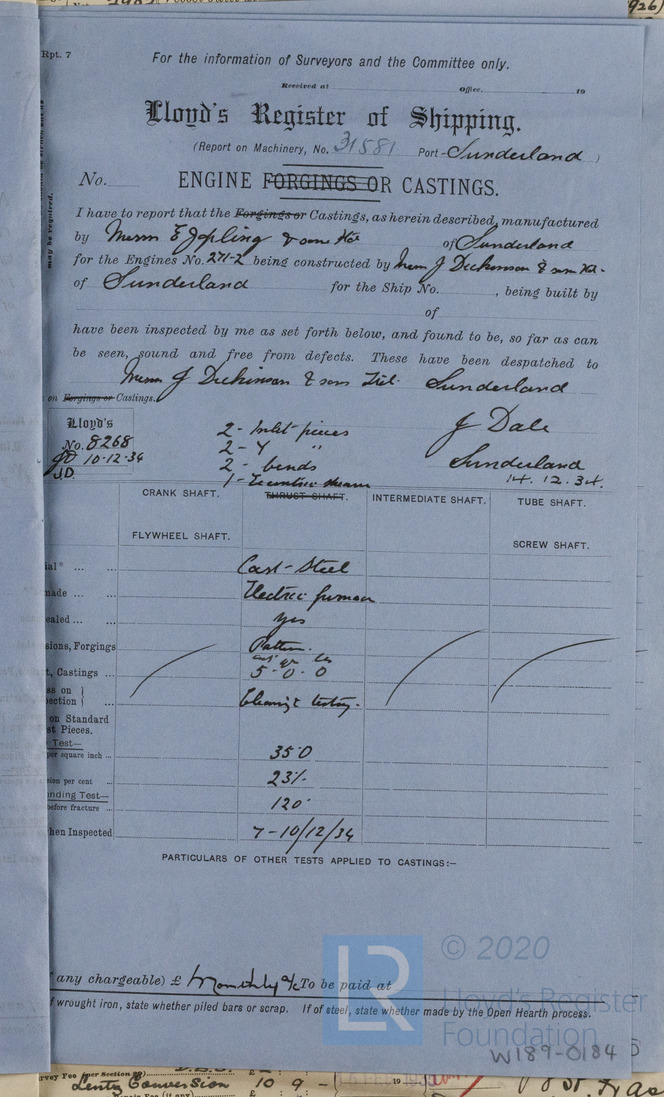 Rpt. 7
For the information of Surveyors and the Committee only.
Received at Office. 19
Lloyd's Register of Shipping.
(Report on Machinery, No. 31581 Port Sunderland )
No. ENGINE FORGINGS OR CASTINGS.
may be required.
I have to report that the Forgings or Castings, as herein described, manufactured
by Messrs E Jopling & sons Ltd of Sunderland
for the Engines No. 271-2 being constructed by Messrs J Dickinson & sons Ltd.
of Sunderland for the Ship No. , being built by
of
have been inspected by me as set forth below, and found to be, so far as can
be seen, sound and free from defects. These have been despatched to
Messrs J Dickinson & sons Ltd. Sunderland
on Forgings or Castings.
Lloyd's
No. 8268
10-12-34
J.D.
2- Inlet pieces
2- Y "
2- bends
1- Eccentric
J Dale
Sunderland
14. 12. 34.
CRANK SHAFT. THRUST SHAFT. INTERMEDIATE SHAFT. TUBE SHAFT.
FLYWHEEL SHAFT. SCREW SHAFT.
ial* ... ... Cast Steel
made ... ... Electric furnace
ealed ... ... Yes
sions, Forgings Pattern.
cwt qr lbs
t, Castings ... 5 - 0 - 0
ss on
ection Cleaning & testing.
on Standard
st Pieces.
Test—
per square inch ... 35.0
sion per cent ... 23%
nding Test—
before fracture ... 120°
hen Inspected 7-10/12/34
PARTICULARS OF OTHER TESTS APPLIED TO CASTINGS:—
any chargeable) £ Monthly a/c To be paid at
f wrought iron, state whether piled bars or scrap. If of steel, state whether made by the Open Hearth process.
LR
© 2020
Lloyd's Register
Foundation
W189-0184
rvey Fee (per Section
Lentz Conversion 10 9 -
19